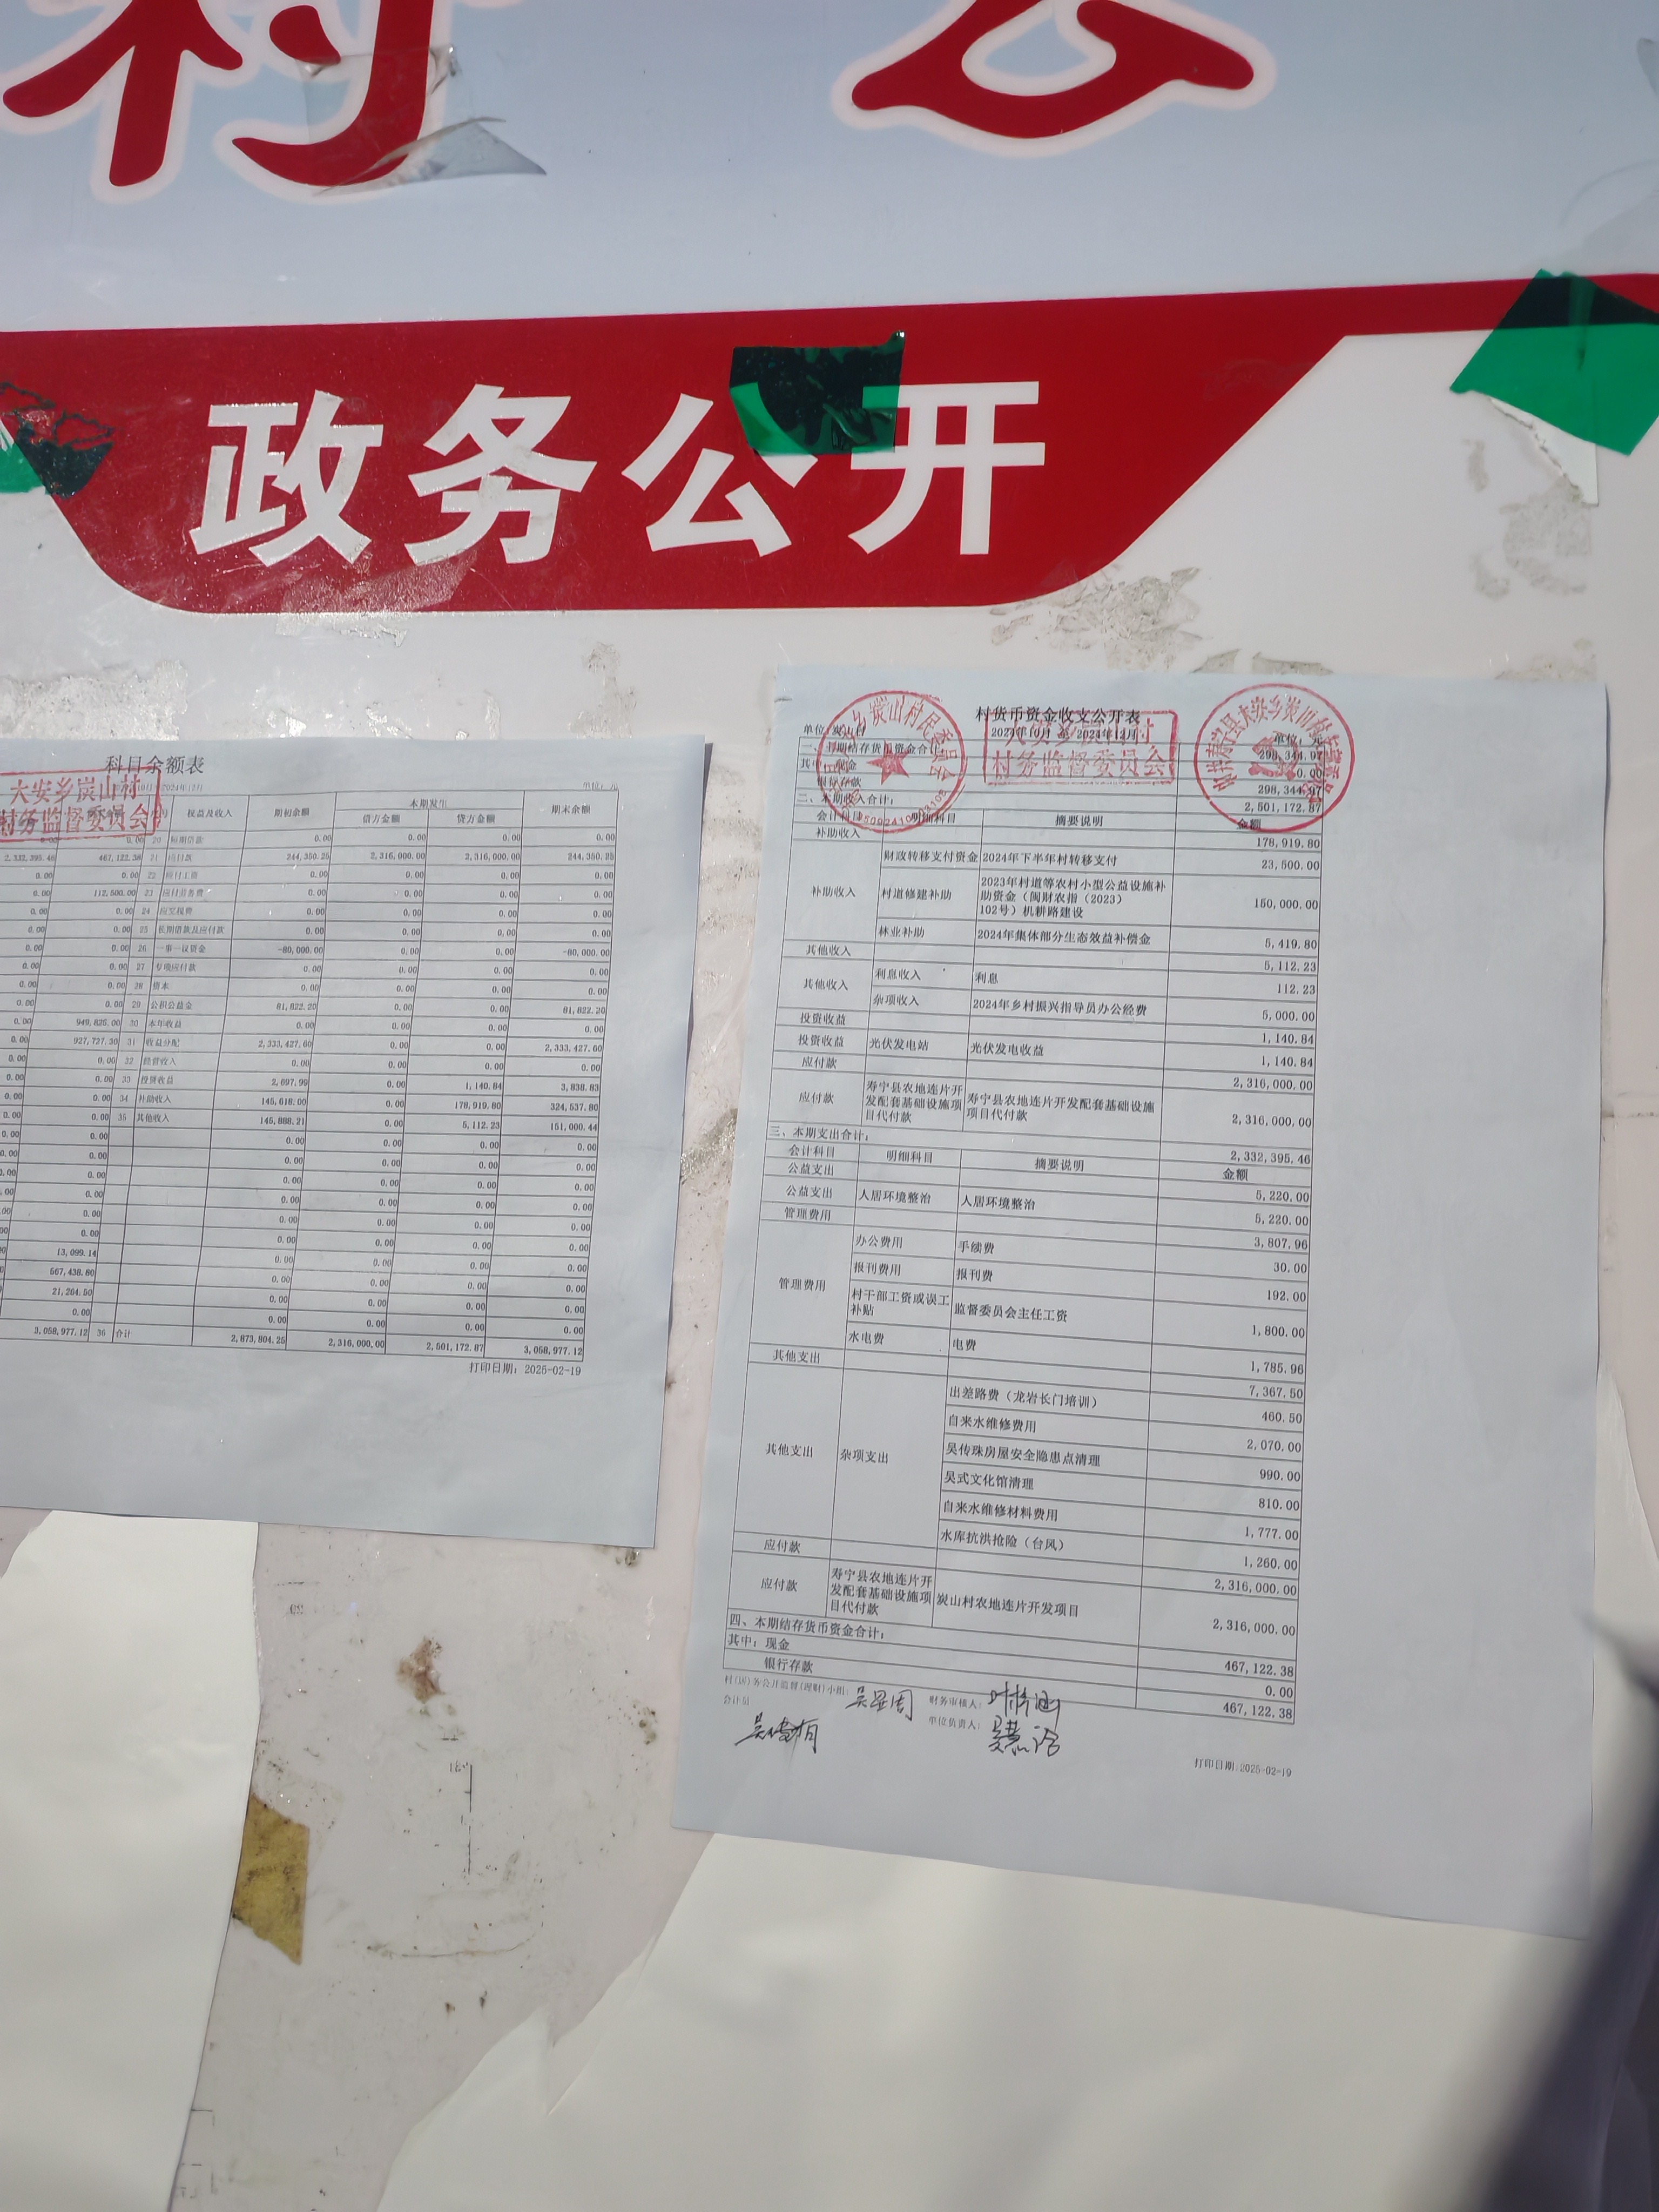 村 公
政务公开
科目余额表
大安乡炭山村
村务监督委员会
单位：元
权益及收入 期初余额 本期发生 期末余额
借方金额 贷方金额
0.00 20 短期借款 0.00 0.00 0.00 0.00
2,332,395.46 467,122.38 21 应付款 244,350.25 2,316,000.00 2,316,000.00 244,350.25
0.00 0.00 22 应付工资 0.00 0.00 0.00 0.00
0.00 112,500.00 23 应付劳务费 0.00 0.00 0.00 0.00
0.00 0.00 24 应交税费 0.00 0.00 0.00 0.00
0.00 0.00 25 长期借款及应付款 0.00 0.00 0.00 0.00
0.00 0.00 26 一事一议资金 -80,000.00 0.00 0.00 -80,000.00
0.00 0.00 27 专项应付款 0.00 0.00 0.00 0.00
0.00 0.00 28 资本 0.00 0.00 0.00 0.00
0.00 0.00 29 公积公益金 81,822.20 0.00 0.00 81,822.20
0.00 949,825.00 30 本年收益 0.00 0.00 0.00 0.00
0.00 927,727.30 31 收益分配 2,333,427.60 0.00 0.00 2,333,427.60
0.00 0.00 32 经营收入 0.00 0.00 0.00 0.00
0.00 0.00 33 投资收益 2,697.99 0.00 1,140.84 3,838.83
0.00 0.00 34 补助收入 145,618.00 0.00 178,919.80 324,537.80
0.00 0.00 35 其他收入 145,888.21 0.00 5,112.23 151,000.44
0.00 0.00 0.00 0.00 0.00
0.00 0.00 0.00 0.00 0.00
0.00 0.00 0.00 0.00 0.00
0.00 0.00 0.00 0.00 0.00
0.00 0.00 0.00 0.00 0.00
0.00 0.00 0.00 0.00 0.00
13,099.14 0.00 0.00 0.00 0.00
567,438.80 0.00 0.00 0.00 0.00
21,264.50 0.00 0.00 0.00 0.00
0.00 0.00 0.00 0.00 0.00
3,058,977.12 36 合计 2,873,804.25 2,316,000.00 2,501,172.87 3,058,977.12
打印日期：2025-02-19
村货币资金收支公开表
单位：炭山村 2024年10月 至 2024年12月 单位：元
大安乡炭山村
村务监督委员会
一、上期结存货币资金合计： 298,344.97
其中：现金 0.00
银行存款 298,344.97
二、本期收入合计： 2,501,172.87
会计科目 明细科目 摘要说明 金额
补助收入 178,919.80
补助收入 财政转移支付资金 2024年下半年村转移支付 23,500.00
村道修建补助 2023年村道等农村小型公益设施补
助资金（闽财农指（2023）
102号）机耕路建设 150,000.00
林业补助 2024年集体部分生态效益补偿金 5,419.80
其他收入 5,112.23
其他收入 利息收入 利息 112.23
杂项收入 2024年乡村振兴指导员办公经费 5,000.00
投资收益 1,140.84
投资收益 光伏发电站 光伏发电收益 1,140.84
应付款 2,316,000.00
应付款 寿宁县农地连片开发配套基础设施项目代付款 寿宁县农地连片开发配套基础设施项目代付款 2,316,000.00
三、本期支出合计： 2,332,395.46
会计科目 明细科目 摘要说明 金额
公益支出 5,220.00
公益支出 人居环境整治 人居环境整治 5,220.00
管理费用 3,807.96
管理费用 办公费用 手续费 30.00
报刊费用 报刊费 192.00
村干部工资或误工补贴 监督委员会主任工资 1,800.00
水电费 电费 1,785.96
其他支出 7,367.50
其他支出 杂项支出 出差路费（龙岩长门培训） 460.50
自来水维修费用 2,070.00
吴传珠房屋安全隐患点清理 990.00
吴式文化馆清理 810.00
自来水维修材料费用 1,777.00
水库抗洪抢险（台风） 1,260.00
应付款 2,316,000.00
应付款 寿宁县农地连片开发配套基础设施项目代付款 炭山村农地连片开发项目 2,316,000.00
四、本期结存货币资金合计： 467,122.38
其中：现金 0.00
银行存款 467,122.38
村(居)务公开监督(理财)小组： 财务审核人：
会计员 单位负责人：
打印日期：2025-02-19